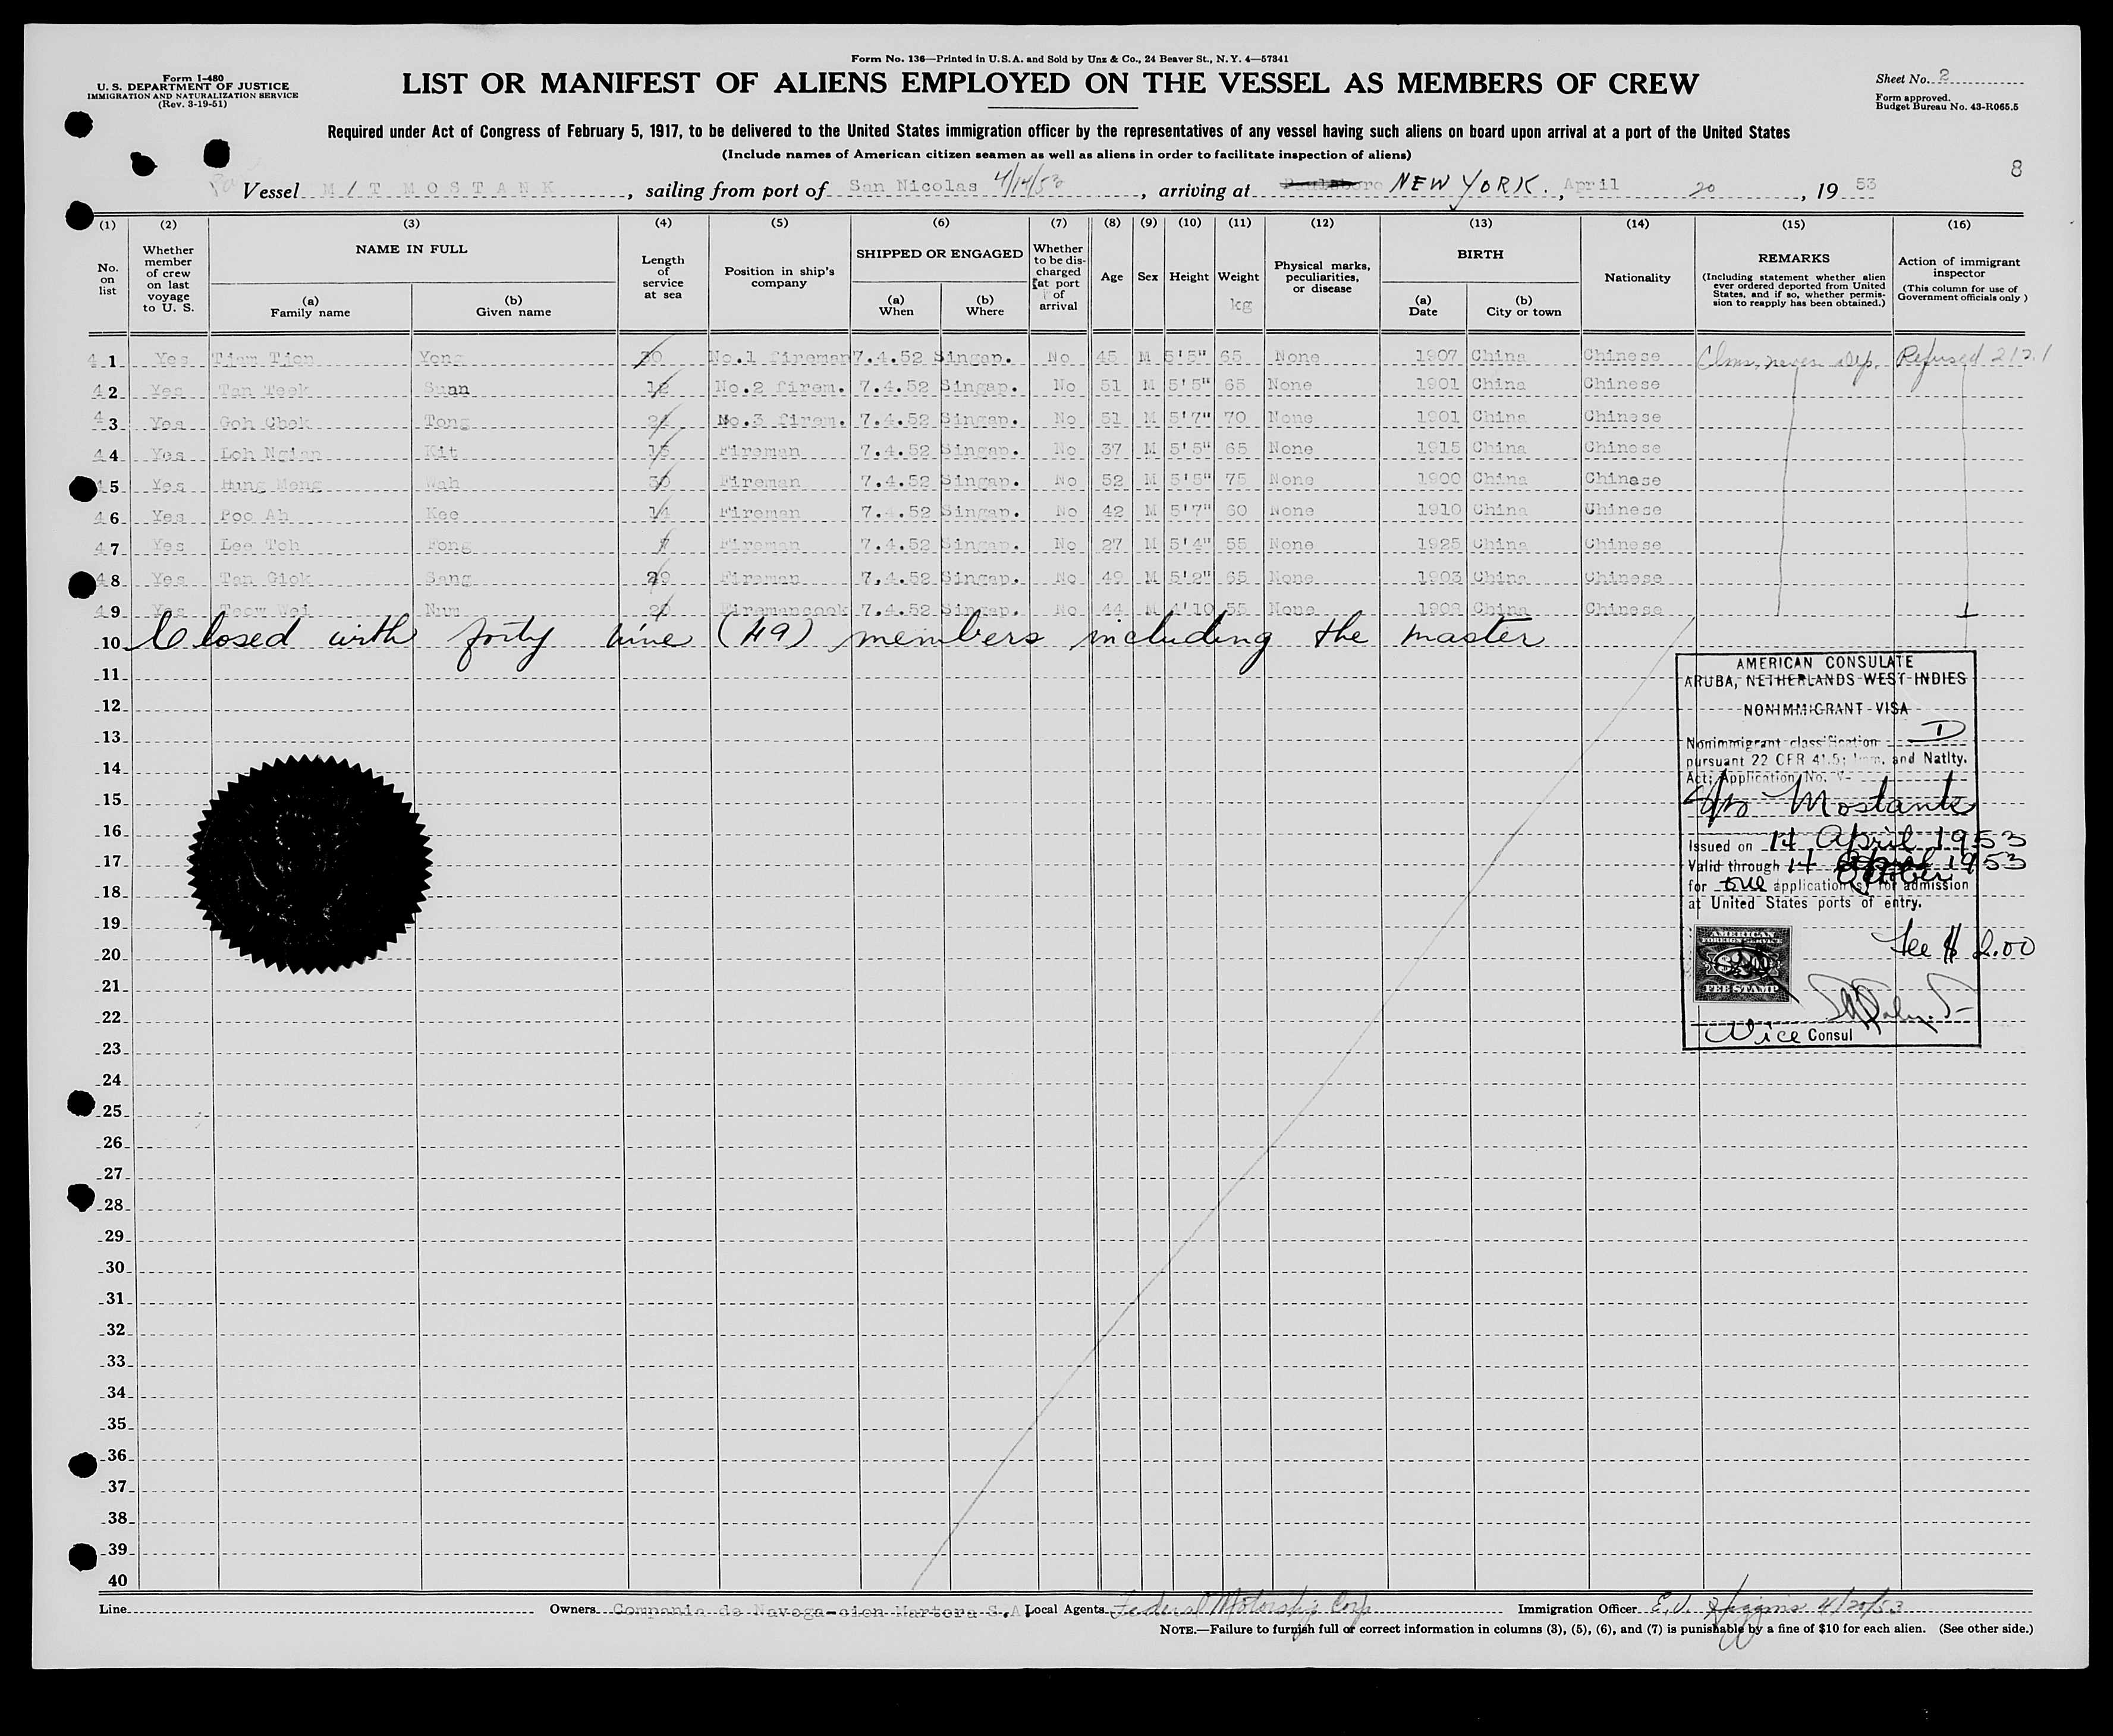 Form No. 136—Printed in U.S.A. and Sold by Unz & Co., 24 Beaver St., N.Y. 4—57341
Form I-480
U. S. DEPARTMENT OF JUSTICE
IMMIGRATION AND NATURALIZATION SERVICE
(Rev. 3-19-51)
LIST OR MANIFEST OF ALIENS EMPLOYED ON THE VESSEL AS MEMBERS OF CREW
Sheet No. 2
Form approved.
Budget Bureau No. 43-R065.5
Required under Act of Congress of February 5, 1917, to be delivered to the United States immigration officer by the representatives of any vessel having such aliens on board upon arrival at a port of the United States
(Include names of American citizen seamen as well as aliens in order to facilitate inspection of aliens)
8
Vessel M/T MOSTANK, sailing from port of San Nicolas 4/14/53, arriving at Paulsboro NEW YORK., April 20, 1953
(1) (2) (3) (4) (5) (6) (7) (8) (9) (10) (11) (12) (13) (14) (15) (16)
No. on list
Whether member of crew on last voyage to U. S.
NAME IN FULL
(a) Family name
(b) Given name
Length of service at sea
Position in ship's company
SHIPPED OR ENGAGED
(a) When
(b) Where
Whether to be discharged at port of arrival
Age
Sex
Height
Weight
kg
Physical marks, peculiarities, or disease
BIRTH
(a) Date
(b) City or town
Nationality
REMARKS
(Including statement whether alien ever ordered deported from United States, and if so, whether permission to reapply has been obtained.)
Action of immigrant inspector
(This column for use of Government officials only)
41 Yes Tjam Tjon Yong 30 No.1 fireman 7.4.52 Singap. No 45 M 5'5" 65 None 1907 China Chinese Clms. never dep. Refused 212.1
42 Yes Tan Teek Suan 12 No.2 firem. 7.4.52 Singap. No 51 M 5'5" 65 None 1901 China Chinese
43 Yes Goh Chok Tong 24 No.3 firem. 7.4.52 Singap. No 51 M 5'7" 70 None 1901 China Chinese
44 Yes Loh Ngian Kit 15 Fireman 7.4.52 Singap. No 37 M 5'5" 65 None 1915 China Chinese
45 Yes Hung Meng Wah 30 Fireman 7.4.52 Singap. No 52 M 5'5" 75 None 1900 China Chinese
46 Yes Poo Ah Kee 14 Fireman 7.4.52 Singap. No 42 M 5'7" 60 None 1910 China Chinese
47 Yes Lee Toh Fong 7 Fireman 7.4.52 Singap. No 27 M 5'4" 55 None 1925 China Chinese
48 Yes Tan Giok Sang 29 Fireman 7.4.52 Singap. No 49 M 5'2" 65 None 1903 China Chinese
49 Yes Teow Wei Num 20 Firemancook 7.4.52 Singap. No 44 M 4'10 55 None 1908 China Chinese
10 Closed with forty nine (49) members including the master
11
12
13
14
15
16
17
18
19
20
21
22
23
24
25
26
27
28
29
30
31
32
33
34
35
36
37
38
39
40
AMERICAN CONSULATE
ARUBA, NETHERLANDS WEST INDIES
NONIMMIGRANT VISA
Nonimmigrant classification D
pursuant 22 CFR 41.5; Imm. and Natlty.
Act; Application No. V-
S/S Mostank
Issued on 14 April 1953
Valid through 14 October 1953
for one application(s) for admission
at United States ports of entry.
AMERICAN
FOREIGN SERVICE
FEE STAMP
Fee $ 2.00
Vice Consul
Line Owners Compania de Navega-cion Martora S.A. Local Agents Federal Motorship Corp Immigration Officer E.J. Higgins 4/20/53
NOTE.—Failure to furnish full or correct information in columns (3), (5), (6), and (7) is punishable by a fine of $10 for each alien. (See other side.)